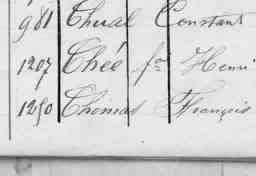 981 Chual Constant
1207 Chéé fois Henri
1250 Thomas François